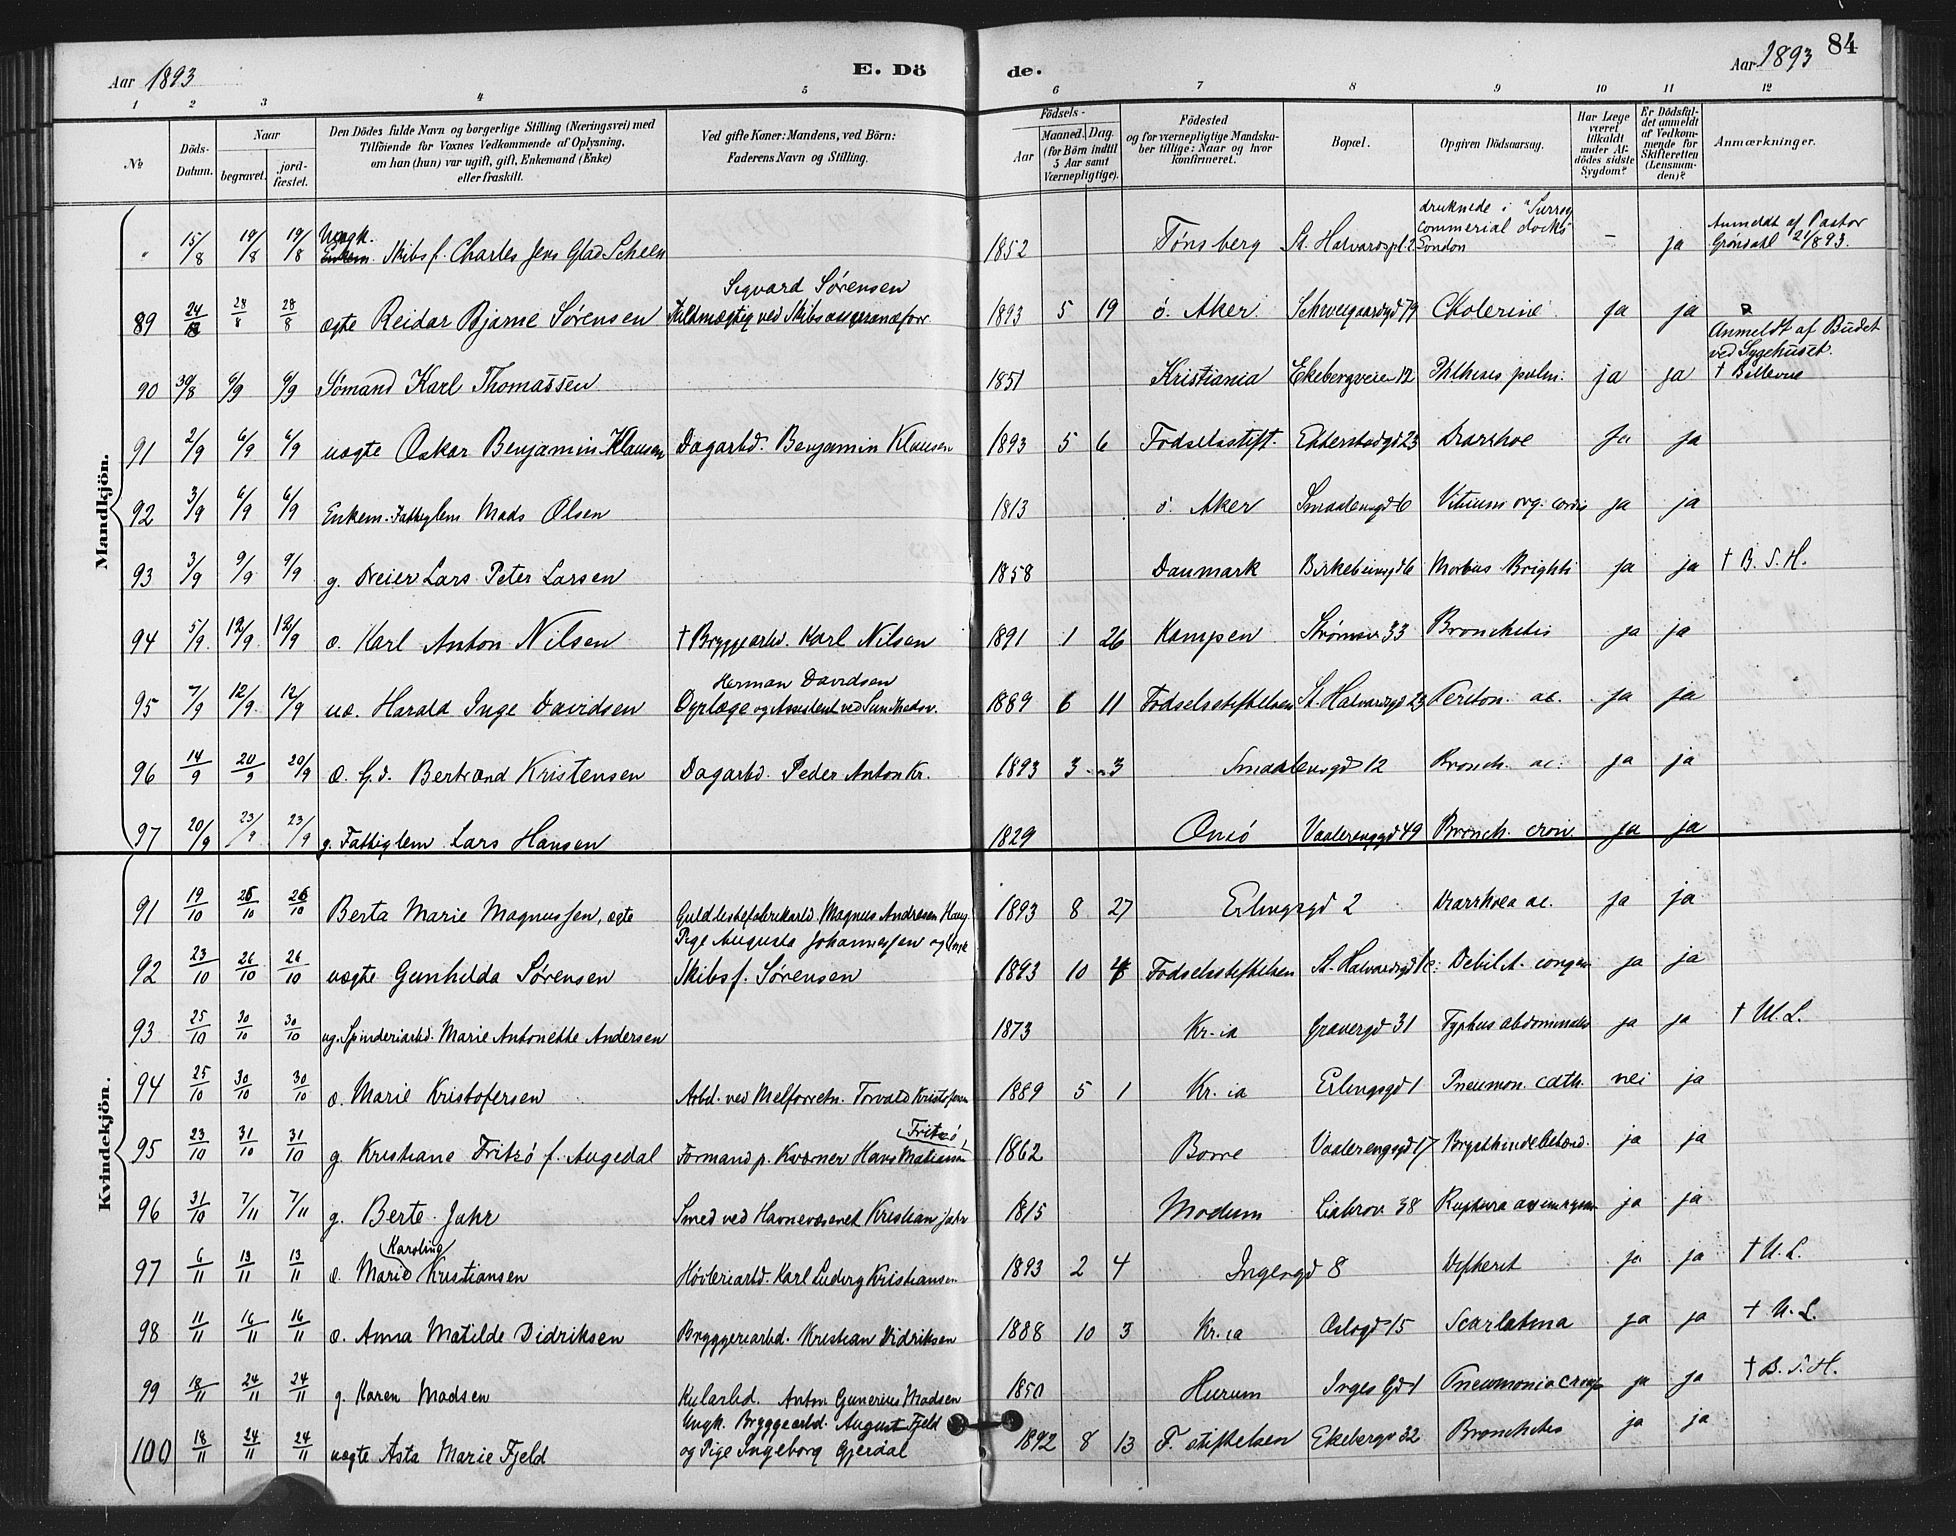 Aar 1893
E. Dö
de.
Aar 1893
84
1 2 3 4 5 6 7 8 9 10 11 12
No
Döds-Datum.
Naar
begravet.
jord-fæstet.
Den Dödes fulde Navn og borgerlige Stilling (Næringsvei) med
Tilföiende for Voxnes Vedkommende af Oplysning,
om han (hun) var ugift, gift, Enkemand (Enke)
eller fraskilt.
Ved gifte Koner: Mandens, ved Börn:
Faderens Navn og Stilling.
Födsels-
Aar
Maaned. Dag.
(for Börn indtil
5 Aar samt
Værnepligtige).
Födested
og for værnepligtige Mandska-
ber tillige: Naar og hvor
konfirmeret.
Bopæl.
Opgiven Dödsaarsag.
Har Læge
været
tilkaldt
under Af-
dödes sidste
Sygdom?
Er Dödsfal-
det anmeldt
af Vedkom-
mende for
Skifteretten
(Lensman-
den)?
Anmærkninger.
Mandkjön.
" 15/8 19/8 19/8 Ungk. Enkem. Skibsf. Charles Jens Glad Scheen 1852 Tønsberg St. Halvardspl. 2 druknede i "Surrey Commercial docks" London — ja Anmeldt af Pastor Grøndahl 21/8 93.
89 24/8 28/8 28/8 ægte Reidar Bjarne Sørensen Sigvard Sørensen Fuldmægtig ved Skibsassuranceför. 1893 5 19 ö. Aker Schweigaardsgd 79 Cholerine ja ja
90 30/8 6/9 6/9 Sømand Karl Thomassen 1851 Kristiania Ekebergveien 12 Phthisis pulm. ja ja Anmeldt af Budet ved Sygehuset. † Bellevue
91 2/9 6/9 6/9 uægte Oskar Benjamin Klausen Dagarbd. Benjamin Klausen 1893 5 6 Fødselsstift. Etterstadgd 23 Diarrhoe ja ja
92 3/9 6/9 6/9 Enkem. Fattiglem Mads Olsen 1813 ö. Aker Smaalensgd 6 Vitium org. cordis ja ja
93 3/9 9/9 9/9 g. Dreier Lars Peter Larsen 1858 Danmark Birkebeinergd 6 Morbus Brightii ja ja † B. S. H.
94 5/9 12/9 12/9 æ. Karl Anton Nilsen † Bryggearbd. Karl Nilsen 1891 1 26 Kampen Strømsv 33 Bronchitis ja ja
95 7/9 12/9 12/9 uæ. Harald Inge Davidsen Herman Davidsen Dyrlæge og Assistent ved Sundhedsv. 1889 6 11 Fødselsstiftelsen St. Halvardsgd 23 Periton. ac. ja ja
96 14/9 20/9 20/9 æ. Gd. Bertrand Kristensen Dagarbd. Peder Anton Kr. 1893 3 3 Smaalensgd 12 Bronch. ac. ja ja
97 20/9 23/9 23/9 g. Fattiglem Lars Hansen 1829 Onsö Vaalerenggd 49 Bronch. cron. ja ja
Kvindekjön.
91 19/10 25/10 25/10 Berta Marie Magnussen, ægte Guldlistefabrikarbd. Magnus Andresen Haug. 1893 8 27 Erlingsgd 2 Diarrhoea ac. ja ja
92 23/10 26/10 26/10 uægte Gunhilda Sørensen Pige Augusta Johannessen og Ungk. Skibsf. Sørensen 1893 10 4 Fødselsstiftelsen St. Halvardsgd 1c Debilit. congen. ja ja
93 25/10 30/10 30/10 ug. Spinderiarbd. Marie Antonette Andersen 1873 Kr.ia Gravergd 31 Typhus abdominalis ja ja † U. L.
94 25/10 30/10 30/10 æ. Marie Kristofersen Arbd. ved Melforretn. Torvald Kristofersen 1889 5 1 Kr.ia Erlingsgd 1 Pneumon. cath. nei ja
95 23/10 31/10 31/10 g. Kristiane Fritzö f. Augedal Formand p. Kværner Hans Matiassen Fritzö, 1862 Borre Vaalerenggd 17 Brysthindebetænd. ja ja
96 31/10 7/11 7/11 g. Berte Jahr Smed ved Havnevæsenet Kristian Jahr 1815 Modum Liabrov 38 Ruptura aneurysm. ja ja
97 6/11 13/11 13/11 æ. Marie Karoline Kristiansen Høvleriarbd. Karl Ludvig Kristiansen 1893 2 4 Ingesgd 8 Difterit ja ja † U. L.
98 11/11 16/11 16/11 æ. Anna Matilde Didriksen Bryggeriarbd. Kristian Didriksen 1888 10 3 Kr.ia Oslogd 15 Scarlatina ja ja † U. L.
99 18/11 24/11 24/11 g. Karen Madsen Kularbd. Anton Gunerius Madsen 1850 Hurum Inges Gd 1 Pneumonia croup. ja ja † B. S. H.
100 18/11 24/11 24/11 uægte Asta Marie Fjeld Ungk. Bryggearbd. August Fjeld og Pige Ingeborg Gjerdal 1892 8 13 F. stiftelsen Ekebergv 32 Bronchitis ja ja